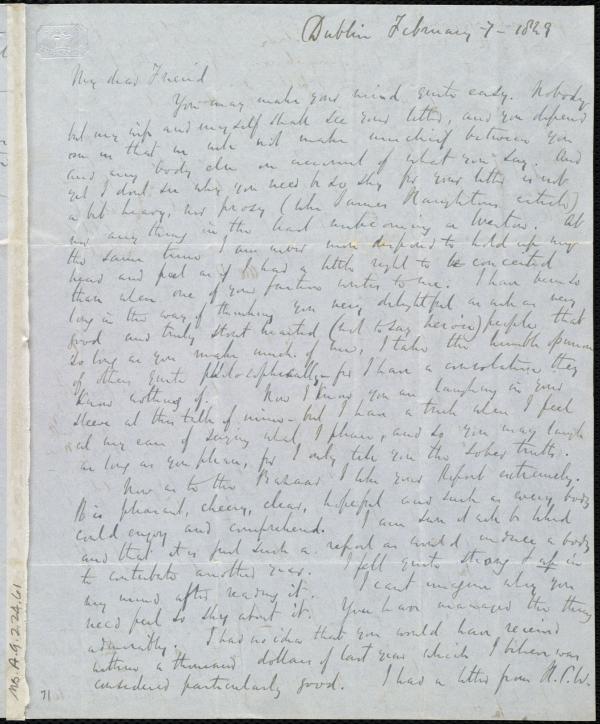 Dublin February 7 - 1849
My dear Friend
You may make your mind quite easy. Nobody
but my wife and myself shall see your letter, and you depend
on us that we will not make mischief between you
and any body else on account of what you say. And
yet I dont see why you need be so shy for your letter is not
a bit heavy, nor prosy (like James Haughtons articles)
nor any thing in the least unbecoming a Weston. At
the same time I am never more disposed to hold up my
head and feel as if I had a little right to be conceited
than when one of your faction writes to me. I have been so
long in the way of thinking you very delightful as well as very
good and truly stout hearted (not to say heroic) people that
so long as you make much of me, I take the humble opinion
of others quite philosophically - for I have a consolation they
know nothing of. Now I know you are laughing in your
sleeve at this talk of mine - but I have a trick when I feel
at my ease of saying what I please, and so you may laugh
as long as you please, for I only tell you the sober truth.
Now as to the Bazaar I like your Report extremely.
It is pleasant, cheery, clear, hopeful and such as every body
could enjoy and comprehend. I am sure it will be liked
and that it is just such a report as would induce a body
to contribute another year. I felt quite strong in
my mind after reading it. I cant imagine why you
need feel so shy about it. You have managed the thing
admirably. I had no idea that you would have received
within a thousand dollars of last year which I believe was
considered particularly good. I had a letter from M.C.W.
71
Ms.A.9.2.24.61